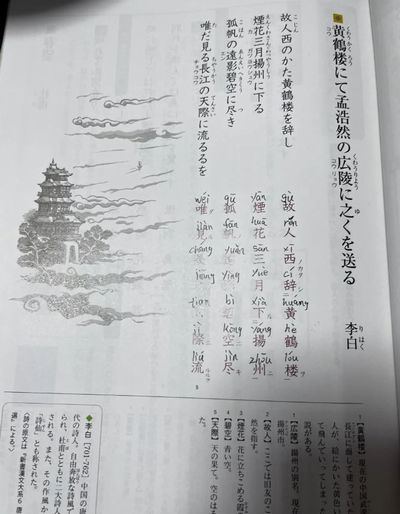 黄鶴楼にて孟浩然の広陵に之くを送る
李白
故人西のかた黄鶴楼を辞し
煙花三月揚州に下る
孤帆の遠影碧空に尽き
唯だ見る長江の天際に流るるを
故人西辞黄鶴楼
gù rén xī cí huáng hè lóu
煙花三月下揚州
yān huā sān yuè xià yáng zhōu
孤帆遠影碧空尽
gū fān yuǎn yǐng bì kōng jìn
唯見長江天際流
wéi jiàn cháng jiāng tiān jì liú
1【黄鶴楼】現在の中国武
長江に面して建ってい
人が、絵にかいた黄色い
て飛んでいってしまった
説がある。
【広陵】揚州の別名。現在
揚州市。
2【故人】ここでは旧友のこ
然を指す。
3【煙花】花に立ちこめる霞
4【碧空】青い空。
5【天際】天の果て。空のは
た。
◆李白［701-762］中国の唐
代の詩人。自由奔放な詩風で
られ、杜甫とともに二大詩
される。また、その作風か
「詩仙」とも称された。
（詩の原文は『新書漢文大系6 唐
選』による。）